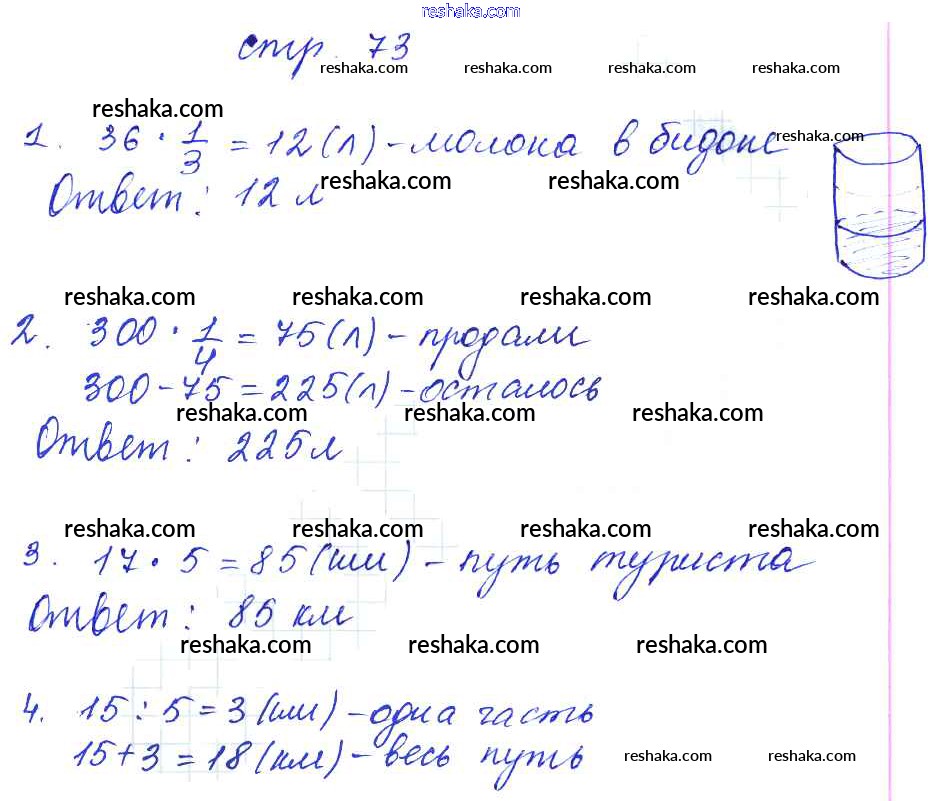 reshaka.com
стр. 73
reshaka.com reshaka.com reshaka.com reshaka.com
reshaka.com
1. 36 · 1/3 = 12 (л) - молока в бидоне
reshaka.com
reshaka.com reshaka.com
Ответ: 12 л
reshaka.com reshaka.com reshaka.com reshaka.com
2. 300 · 1/4 = 75 (л) - продали
300 - 75 = 225 (л) - осталось
reshaka.com reshaka.com reshaka.com
Ответ: 225 л
reshaka.com reshaka.com reshaka.com reshaka.com
3. 17 · 5 = 85 (км) - путь туриста
Ответ: 85 км
reshaka.com reshaka.com reshaka.com
4. 15 : 5 = 3 (км) - одна часть
15 + 3 = 18 (км) - весь путь
reshaka.com reshaka.com